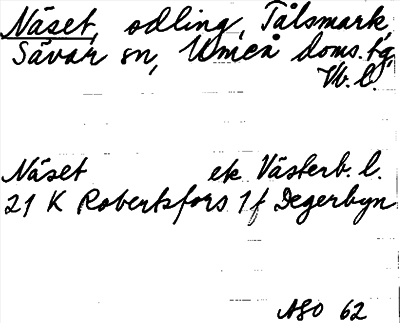 Näset, odling, Tålsmark,
Sävar sn, Umeå doms. tg,
Vb. l.
Näset ek Västerb. l.
21 K Robertsfors 1f Degerbyn
ASO 62